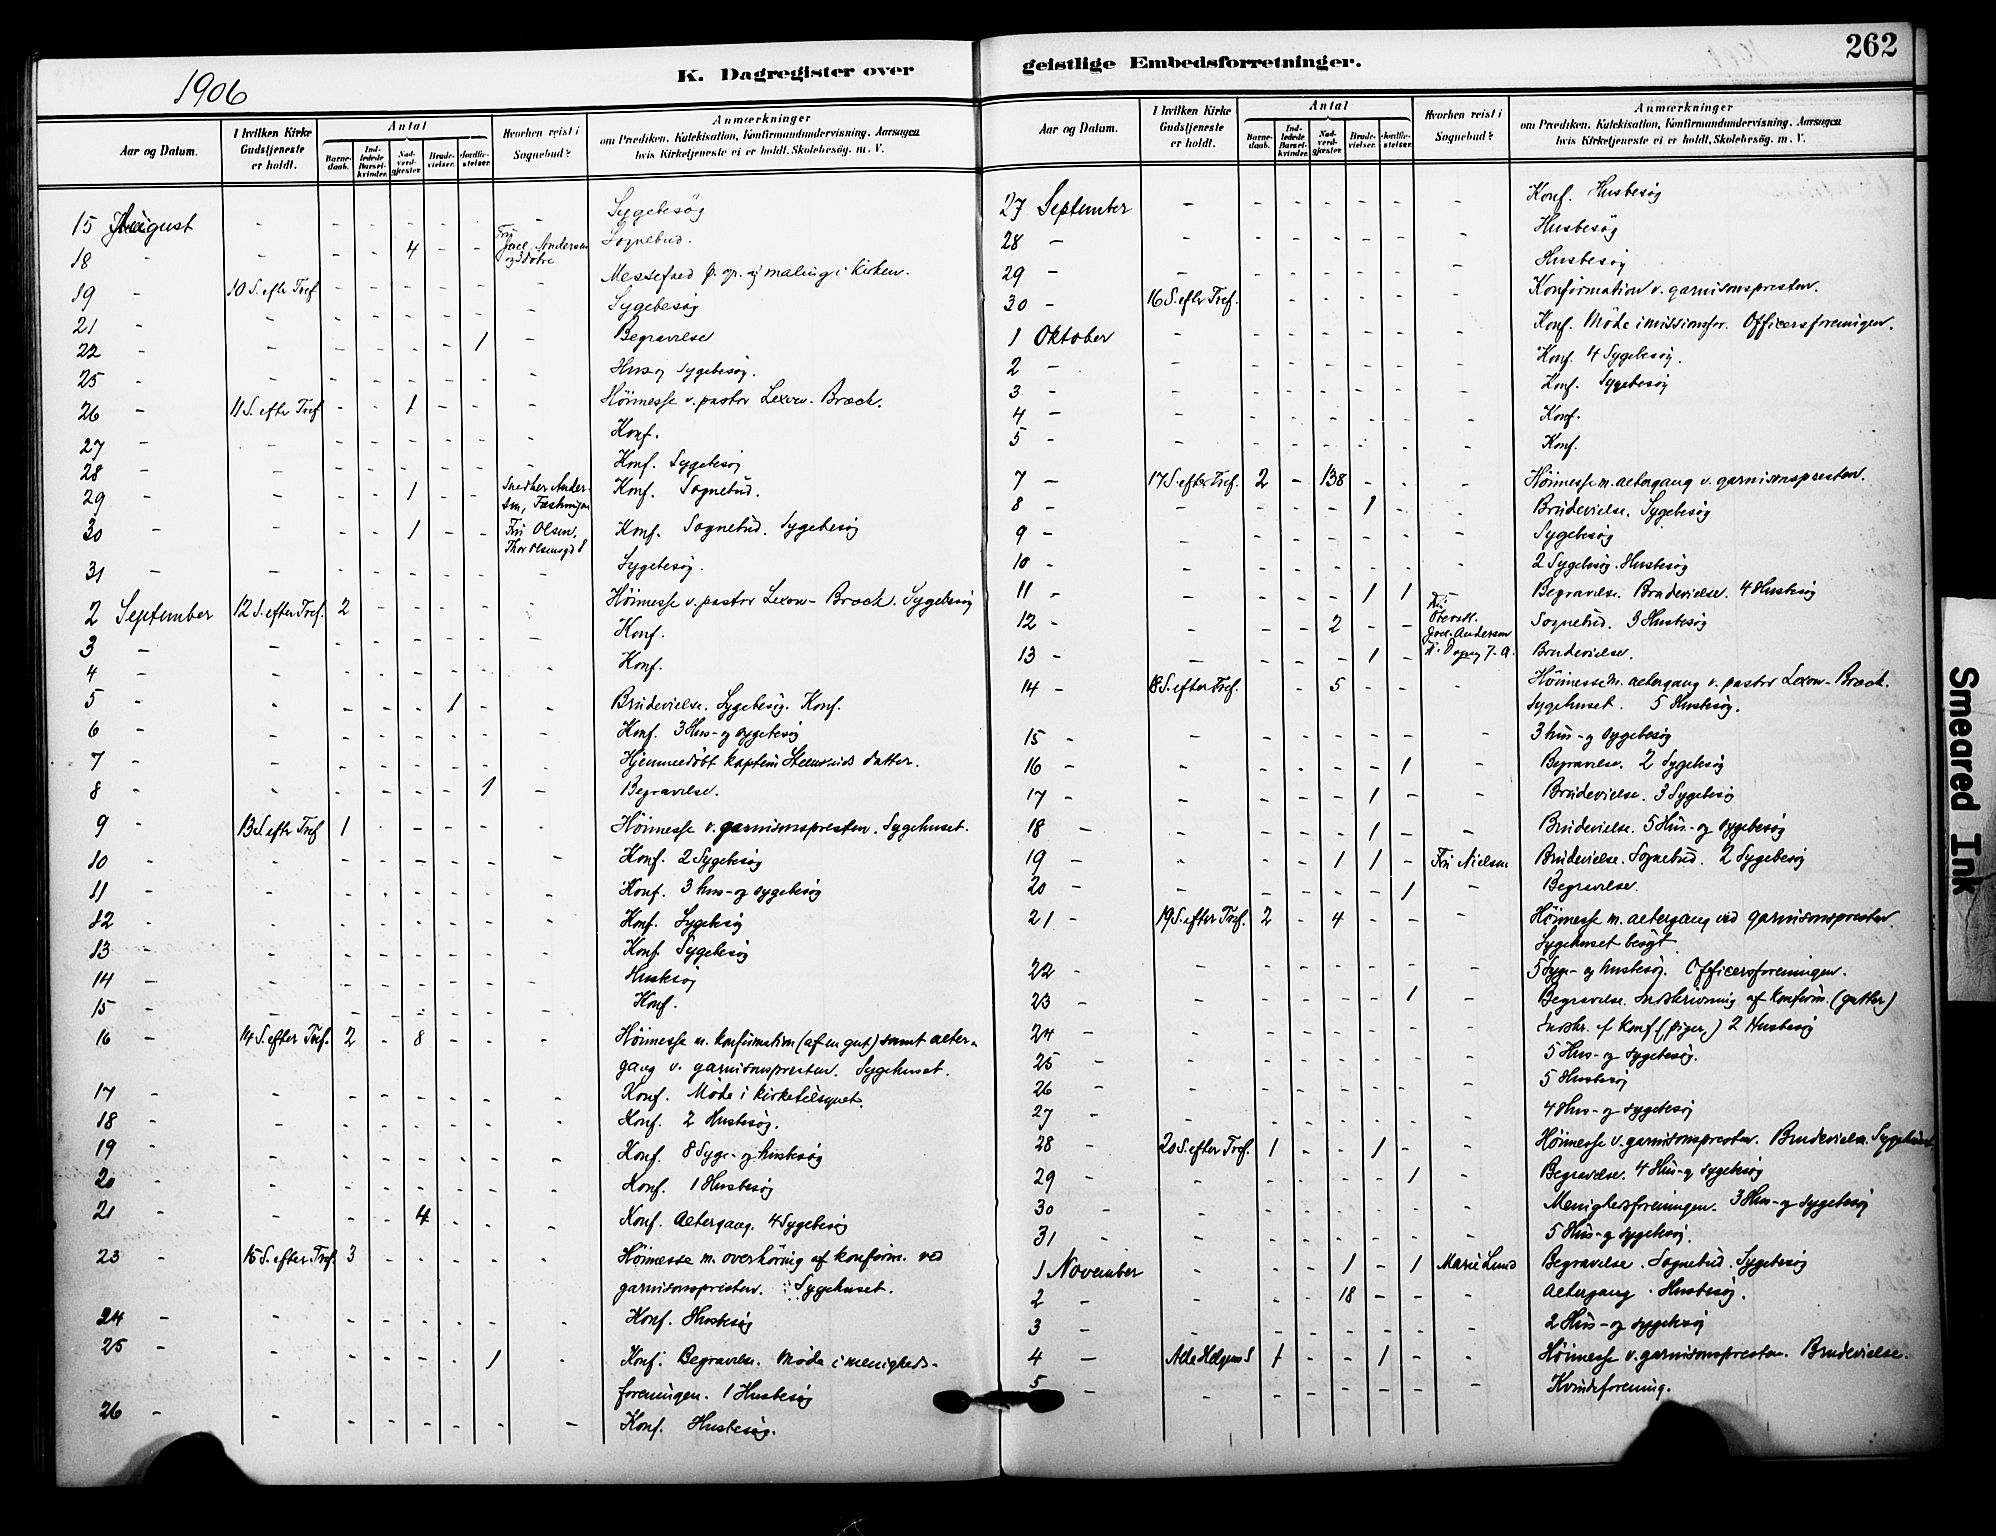 1906
K. Dagregister over
Aar og Datum. I hvilken Kirke Gudstjeneste er holdt. Antal Barnedaab. Indledede Barselkvinder. Nadverdgjæster. Brudevielser. Jordfæstelser. Hvorhen reist i Sognebud? Anmærkninger om Prædiken, Katekisation, Konfirmandundervisning, Aarsagen hvis Kirketjeneste ei er holdt, Skolebesøg, m. V.
15 August - - - - - - - Sygebesøg
18 - - - - 4 - - Andersen Sognebud.
19 - 10 S. efter Tref - - - - - - Messefald maling i kirken.
21 - - - - - - - - Sygebesøg
22 - - - - - - 1 - Begravelse
25 - - - - - - - - Hus og sygebesøg.
26 - 11 S. efter Tref - - 1 - - - Høimesse v. pastor Lexow-Bræck.
27 - - - - - - - - Konf.
28 - - - - - - - - Konf. Sygebesøg
29 - - - - 1 - - Snedker Andersen, Konf. Sognebud.
30 - - - - 1 - - Fru Olsen, Thor Olsensgd 8 Konf. Sognebud. Sygebesøg
31 - - - - - - - - Sygebesøg.
2 September 12 S. efter Tref. 2 - - - - - Høimesse v. pastor Lexow-Bræck. Sygebesøg
3 - - - - - - - - Konf.
4 - - - - - - - - Konf.
5 - - - - - 1 - - Brudevielse. Sygebesøg. Konf.
6 - - - - - - - - Konf. 3 Hus- og sygebesøg
7 - - - - - - - - Hjemmedøbt kaptein datter.
8 - - - - - - 1 - Begravelse.
9 - 13 S. efter Tref 1 - - - - - Høimesse v. garnisonspresten. Sygehuset.
10 - - - - - - - - Konf. 2 Sygebesøg
11 - - - - - - - - Konf. 3 hus- og sygebesøg
12 - - - - - - - - Konf. Sygebesøg
13 - - - - - - - - Konf. Sygebesøg
14 - - - - - - - - Husbesøg
15 - - - - - - - - Konf.
16 - 14 S. efter Tref. 2 - 8 - - - Høimesse m. konfirmation (af en gut) samt alter-
gang v. garnisonspresten. Sygehuset.
17 - - - - - - - - Konf. Møde i kirketilsynet.
18 - - - - - - - - Konf. 2 Husbesøg.
19 - - - - - - - - Konf. 8 Syge- og husbesøg
20 - - - - - - - - Konf. 1 Husbesøg
21 - - - - 4 - - - Konf. Altergang. 4 Sygebesøg
23 - 15 S. efter Tref. 3 - - - - - Høimesse m. overhøring af konfirm. ved
garnisonspresten. Sygehuset.
24 - - - - - - - - Konf. Husbesøg
25 - - - - - - 1 - Konf. Begravelse. Møde i menigheds-
foreningen. 1 Husbesøg
26 - - - - - - - - Konf. Husbesøg.
262
geistlige Embedsforretninger.
Aar og Datum. I hvilken Kirke Gudstjeneste er holdt. Antal Barnedaab. Indledede Barselkvinder. Nadverdgjæster. Brudevielser. Jordfæstelser. Hvorhen reist i Sognebud? Anmærkninger om Prædiken, Katekisation, Konfirmandundervisning, Aarsagen hvis Kirketjeneste ei er holdt, Skolebesøg, m. V.
27 September - - - - - - - Konf. Husbesøg
28 - - - - - - - - Husbesøg
29 - - - - - - - - Husbesøg
30 - 16 S. efter Tref. - - - - - - Konfirmation v. garnisonspresten.
1 Oktober - - - - - - - Konf. Møde i missionsfor. Officersforeningen.
2 - - - - - - - - Konf. 4 Sygebesøg.
3 - - - - - - - - Konf. Sygebesøg
4 - - - - - - - - Konf.
5 - - - - - - - - Konf.
7 - 17 S. efter Tref. 2 - 138 - - - Høimesse m. altergang v. garnisonspresten.
8 - - - - - 1 - - Brudevielse. Sygebesøg
9 - - - - - - - - Sygebesøg
10 - - - - - - - - 2 Sygebesøg. Husbesøg
11 - - - - - 1 1 - Begravelse. Brudevielse. 4 Husbesøg
12 - - - - 2 - - Andersen Sognebud. 3 Husbesøg
13 - - - - - 1 - Brudevielse.
14 - 18 S. efter Tref. - - 5 - - - Høimesse m. altergang v. pastor Lexow-Bræck.
Sygehuset. 5 Husbesøg.
15 - - - - - - - - 3 hus- og sygebesøg
16 - - - - - - 1 - Begravelse. 2 Sygebesøg
17 - - - - - 1 - - Brudevielse. 3 Sygebesøg
18 - - - - - 1 - - Brudevielse. 5 Hus- og sygebesøg
19 - - - - 1 1 - Fru Nielsen Brudevielse. Sognebud. 2 Sygebesøg
20 - - - - - - 1 - Begravelse.
21 - 19 S. efter Tref. 2 - 4 - - - Høimesse m. altergang ved garnisonspresten.
Sygehuset besøgt
22 - - - - - - - - 5 Syge- og husbesøg. Officersforeningen.
23 - - - - - - 1 - Begravelse. Indskrivning af konfirm. (gutter)
24 - - - - - - - - Indskr. af konf. (piger) 2 Husbesøg
25 - - - - - - - - 5 Hus- og sygebesøg.
26 - - - - - - - - 5 Husbesøg
27 - - - - - - - - 4 Hus- og sygebesøg
28 - 20 S. efter Tref. 1 - - 1 - - Høimesse v. garnisonspresten. Brudevielse. Sygehuset.
29 - - - - - - 1 - Begravelse. 4 Hus- og sygebesøg
30 - - - - - - - - Menighedsforeningen. 3 Hus- og sygebesøg
31 - - - - - - - - 5 Hus- og sygebesøg.
1 November - - - 1 - 1 Marie Lund Begravelse. Sognebud. Sygebesøg
2 - - - - 18 - - - Altergang. Husbesøg.
3 - - - - - - - - 2 Hus- og sygebesøg
4 - Alle Helgens S 1 - - 1 - - Høimesse v. garnisonspresten. Brudevielse.
5 - - - - - - - - Kvindeforening.
Smeared Ink